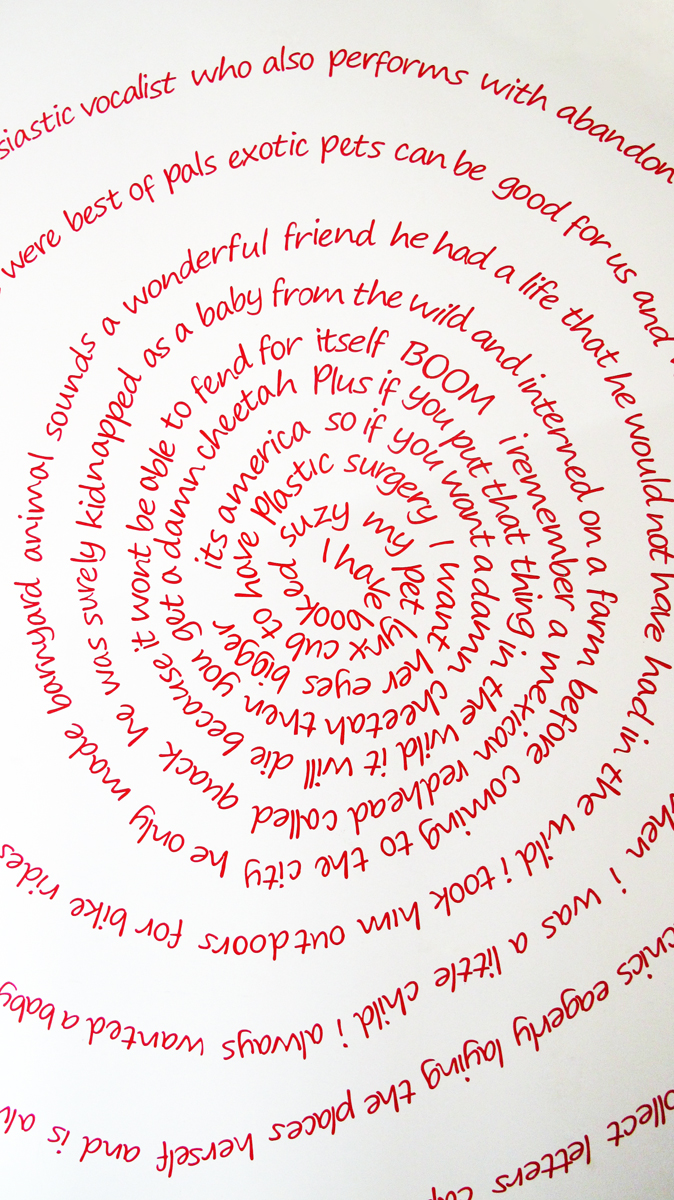 I have booked
suzy my pet lynx cub
to have plastic surgery I want her eyes bigger
its america so if you want a damn cheetah then you
get a damn cheetah Plus if you put that thing in the wild it will die because
it wont be able to fend for itself BOOM i remember a mexican redhead called quack
he was surely kidnapped as a baby from the wild and interned on a farm before coming to the city
he only made barnyard animal sounds a wonderful friend he had a life that he would not have had in the wild i took him outdoors for bike rides
were best of pals exotic pets can be good for us and
hen i was a little child i always wanted a baby
siastic vocalist who also performs with abandon
cnics eagerly laying the places herself and is alw
ollect letters